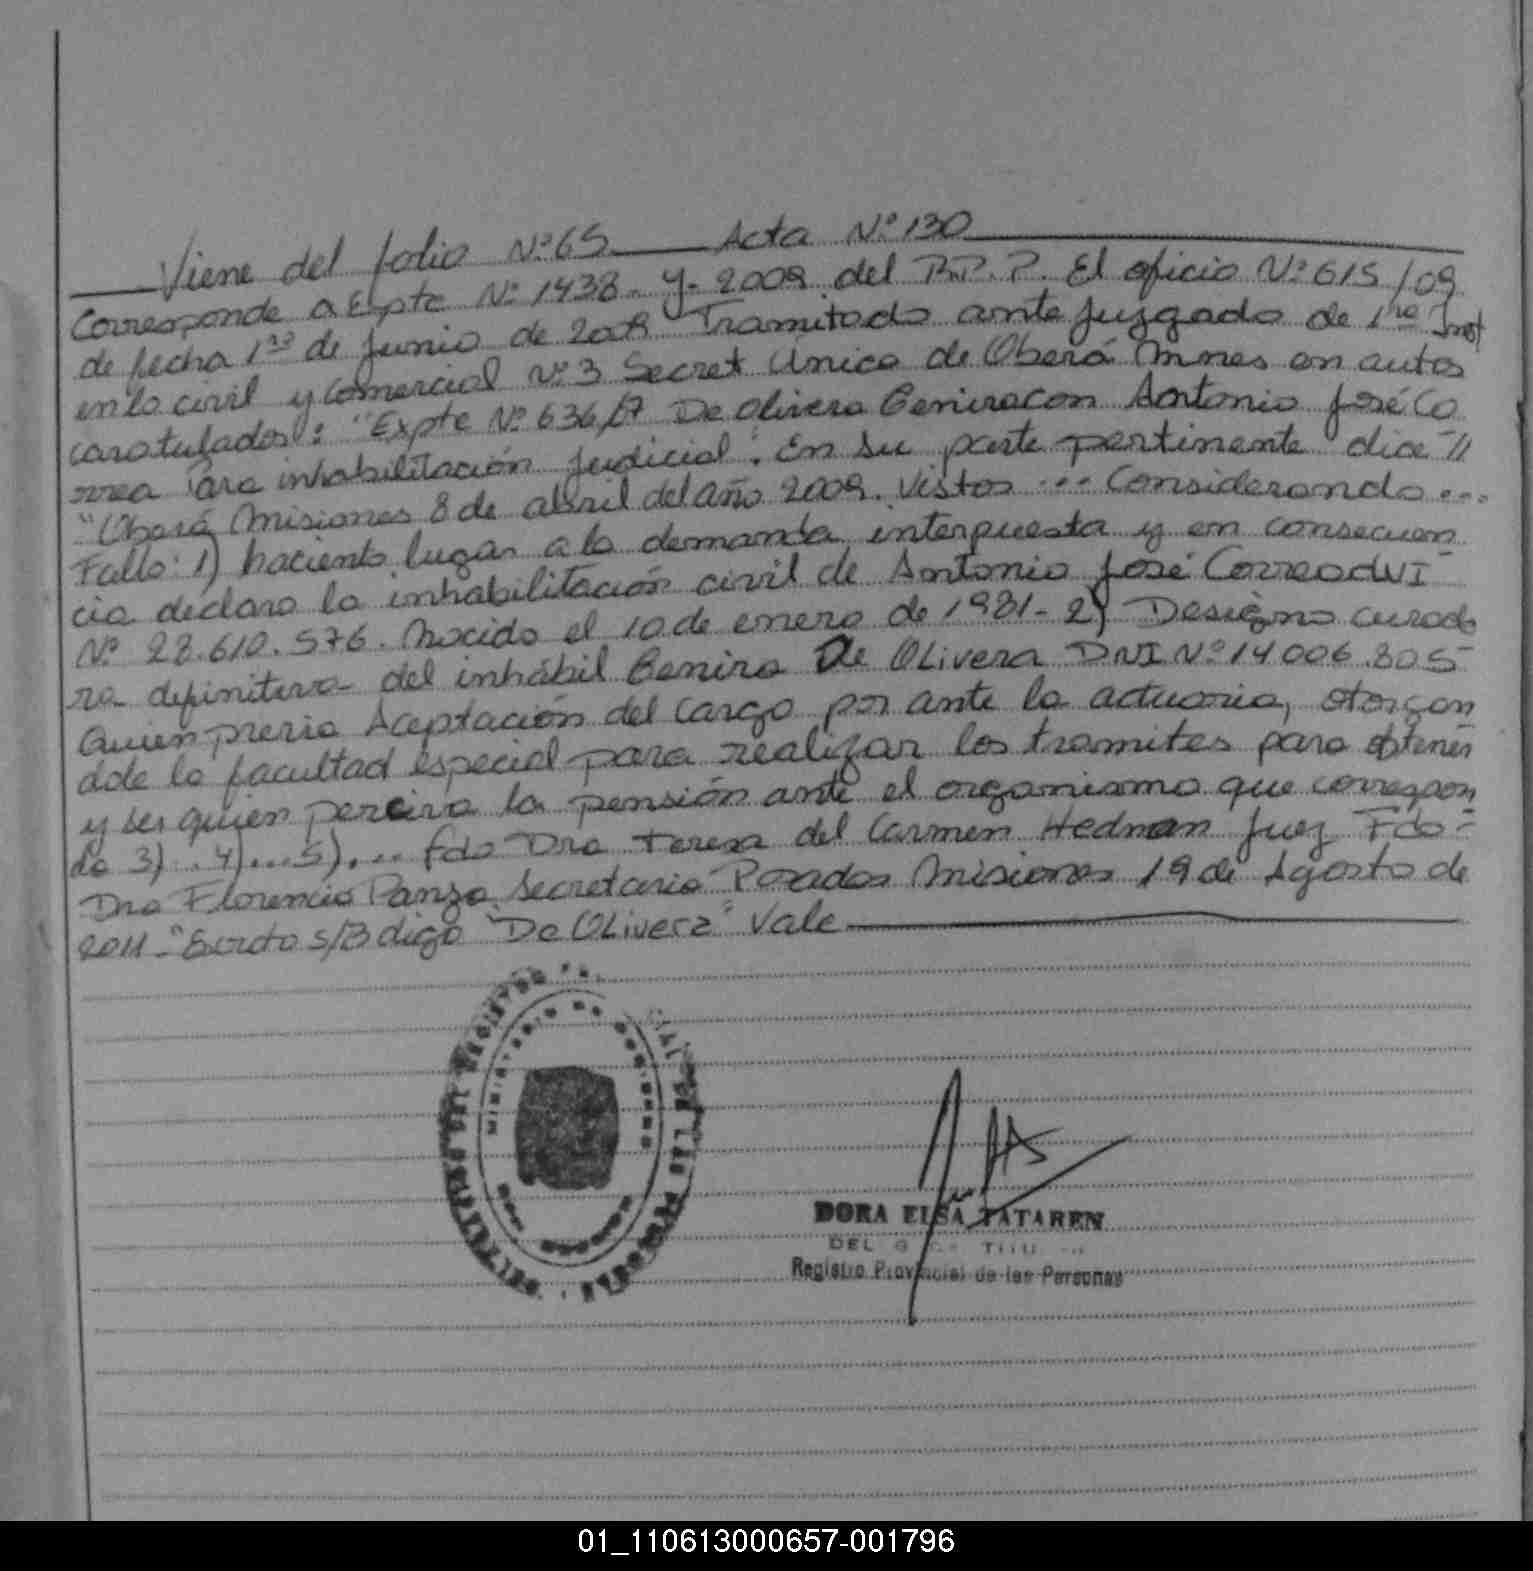 Viene del folio Nº 65 Acta Nº 130
Corresponde a Expte Nº 1438- Y- 2009 del R.P.P. El oficio Nº 615/09
de fecha 1ro de Junio de 2009 Tramitado ante Juzgado de 1ra Inst
en lo civil y Comercial Nº 3 Secret Única de Oberá Mnes en autos
caratulados: "Expte Nº 636/07 De Olivera Genira con Antonio José Co
rrea Para inhabilitación judicial". En su parte pertinente dice "//
"Oberá Misiones 8 de abril del año 2009. Vistos ... Considerando ...
Fallo: 1) haciento lugar a la demanda interpuesta y en consecuen
cia declaro la inhabilitación civil de Antonio José Correa dNI
Nº 28.610.576. Nacido el 10 de enero de 1981- 2) Designo curado
ra definitiva del inhábil Genira De Olivera DNI Nº 14 006.805
Quien previa Aceptación del Cargo por ante la actuaria, otorgan
dole la facultad especial para realizar los tramites para obtener
y ser quien perciva la pensión ante el organismo que correspon
da 3)..4)...5)... fdo Dra Teresa del Carmen Hedman Juez Fdo-
Dra Florencia Panza Secretaria Posadas Misiones 19 de Agosto de
2011.- S/B digo "De Olivera" Vale
MINISTERIO DE
DORA ELSA TATAREN
Registro Provincial de las Personas
01_110613000657-001796